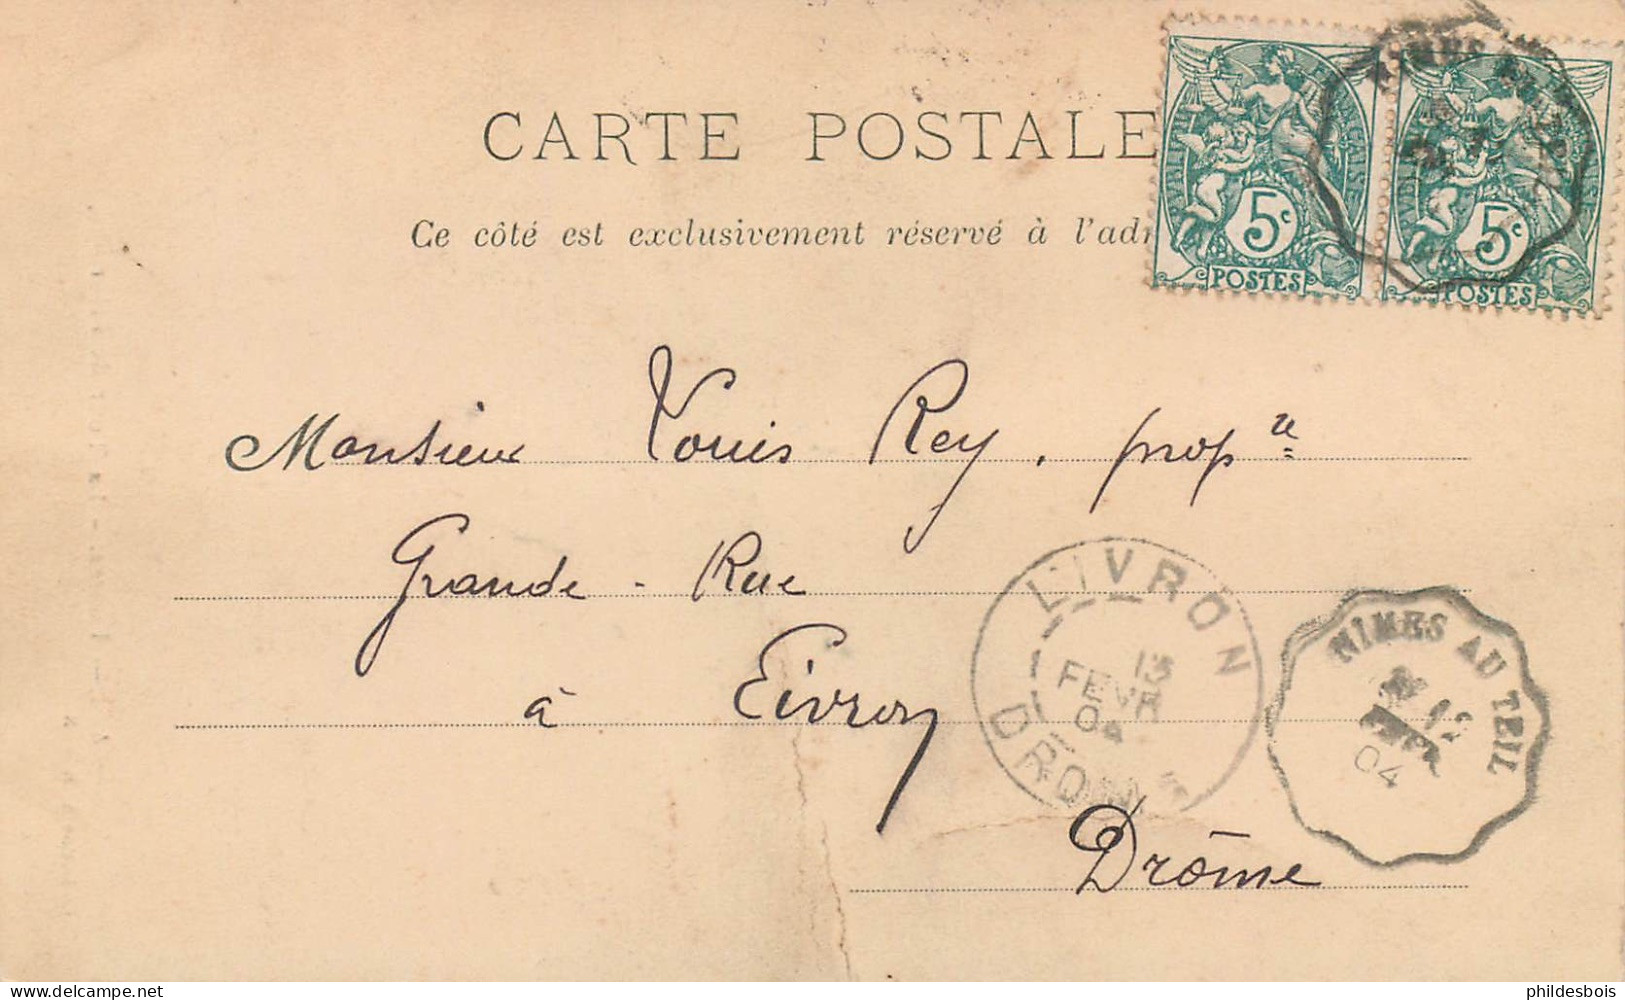 CARTE POSTALE
Ce côté est exclusivement réservé à l'adr
5c
POSTES
5c
POSTES
NIMES AU TEIL
Monsieur Louis Rey, prop re
Grande-Rue
à Livron
Drôme
LIVRON
13
FEVR
04
DROME
NIMES AU TEIL
12
04
delcampe.net
phildesbois